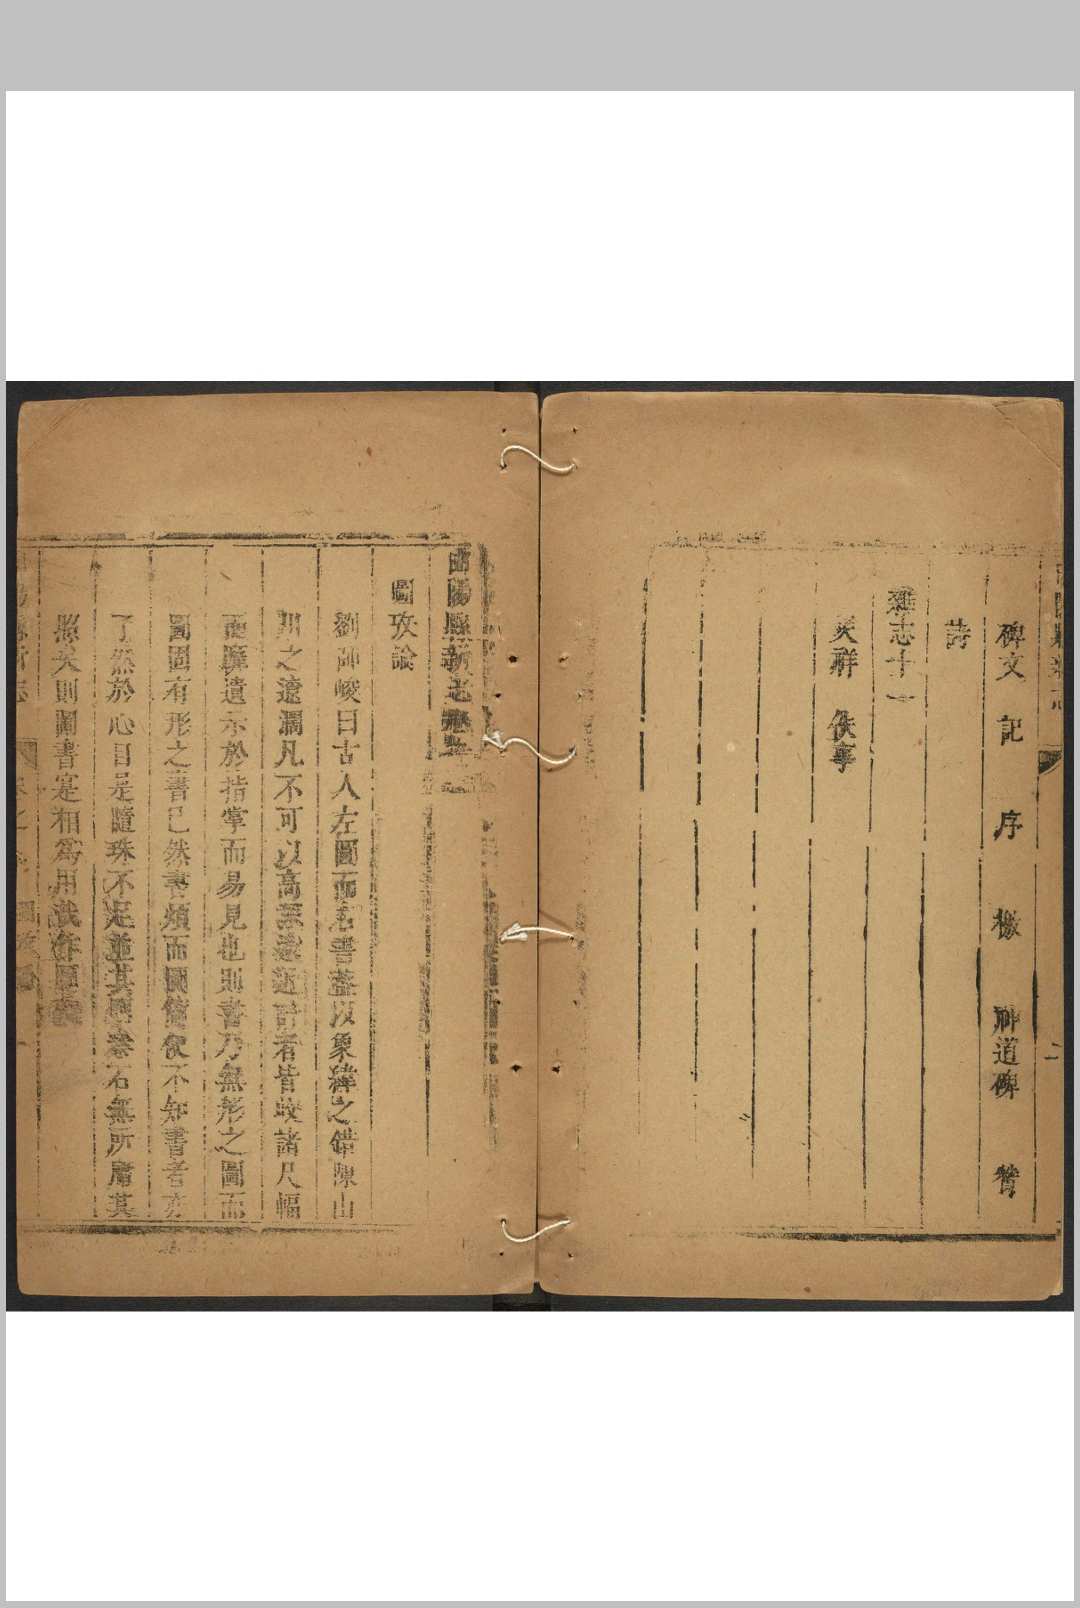 碑文 記 序 檄 神道碑 贊
詩
雜志十一
災祥 佚事
曲陽縣新志卷
圖攷論
劉師峻曰古人左圖而右書蓋以象緯之錯陳山
川之遼濶凡不可以高深遠近計者皆收諸尺幅
而靡遺示於指掌而易見也則書乃無形之圖而
圖固有形之書已然書煩而圖簡閱不知書者亦
了然於心目是隨珠不足並其照秦石無所庸其
照矣則圖書寔相爲用哉作圖攷